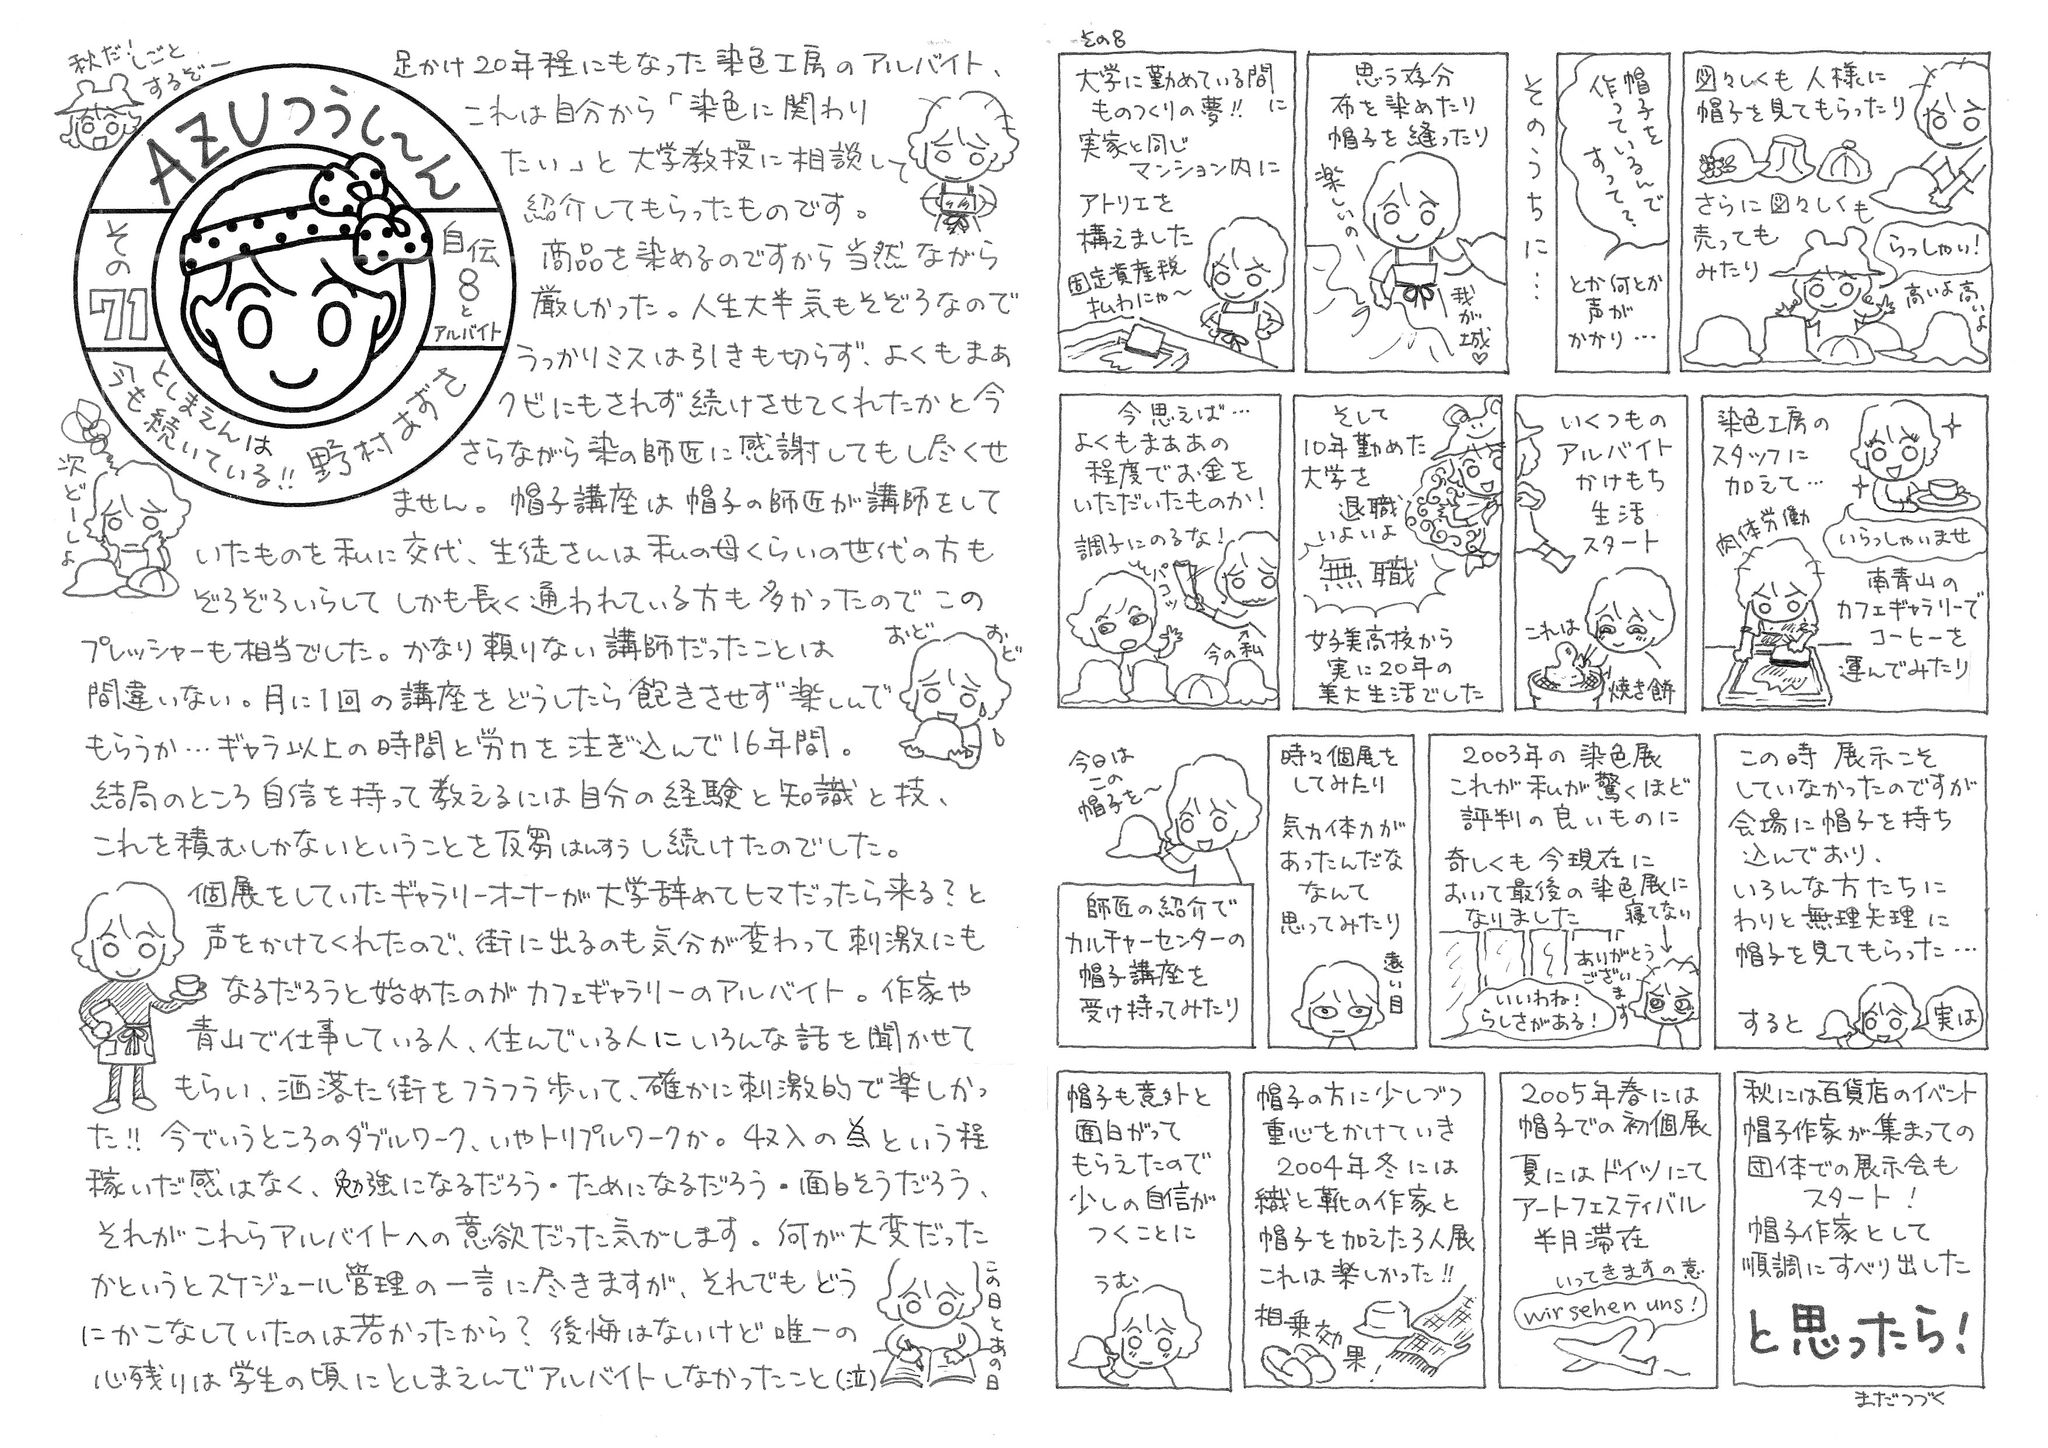 秋だ!しごと
するぞー
AZUつうしん
その
71
自伝
8と
アルバイト
としまえんは
今も続いている!!
野村あずさ
次どーしよ
足かけ20年程にもなった染色工房のアルバイト、
これは自分から「染色に関わり
たい」と大学教授に相談して
紹介してもらったものです。
商品を染めるのですから当然ながら
厳しかった。人生大半気もそぞろなので
うっかりミスは引きも切らず、よくもまあ
クビにもされず続けさせてくれたかと今
さらながら染の師匠に感謝してもし尽くせ
ません。帽子講座は帽子の師匠が講師をして
いたものを私に交代、生徒さんは私の母くらいの世代の方も
ぞろぞろいらして しかも長く通われている方も多かったのでこの
プレッシャーも相当でした。かなり頼りない講師だったことは
間違いない。月に1回の講座をどうしたら飽きさせず楽しんで
もらうか…ギャラ以上の時間と労力を注ぎ込んで16年間。
結局のところ自信を持って教えるには自分の経験と知識と技、
これを積むしかないということを反芻はんすうし続けたのでした。
おど
おど
個展をしていたギャラリーオーナーが大学辞めてヒマだったら来る?と
声をかけてくれたので、街に出るのも気分が変わって刺激にも
なるだろうと始めたのがカフェギャラリーのアルバイト。作家や
青山で仕事している人、住んでいる人にいろんな話を聞かせて
もらい、洒落た街をフラフラ歩いて、確かに刺激的で楽しかっ
た!!今でいうところのダブルワーク、いやトリプルワークか。収入の為という程
稼いだ感はなく、勉強になるだろう・ためになるだろう・面白そうだろう、
それがこれらアルバイトへの意欲だった気がします。何が大変だった
かというとスケジュール管理の一言に尽きますが、それでもどう
にかこなしていたのは若かったから?後悔はないけど唯一の
心残りは学生の頃にとしまえんでアルバイトしなかったこと(泣)
この日とあの日
その8
大学に勤めている間に
ものつくりの夢!!
実家と同じ
マンション内に
アトリエを
構えました
固定資産税
払わにゃ〜
思う存分
布を染めたり
帽子を縫ったり
楽しいの
我が城♡
そのうちに…
帽子を
作っているんで
すって?
とか何とか
声が
かかり…
図々しくも人様に
帽子を見てもらったり
さらに図々しくも
売っても
みたり
らっしゃい!
高いよ高いよ
今思えば…
よくもまああの
程度でお金を
いただいたものか!
調子にのるな!
パコッ
今の私
そして
10年勤めた
大学を
退職
いよいよ
無職
女子美高校から
実に20年の
美大生活でした
いくつもの
アルバイト
かけもち
生活
スタート
これは
焼き餅
染色工房の
スタッフに
加えて…
肉体労働
いらっしゃいませ
南青山の
カフェギャラリーで
コーヒーを
運んでみたり
今日は
この
帽子を〜
師匠の紹介で
カルチャーセンターの
帽子講座を
受け持ってみたり
時々個展を
してみたり
気力体力が
あったんだな
なんて
思ってみたり
遠い目
2003年の染色展
これが私が驚くほど
評判の良いものに
奇しくも今現在に
おいて最後の染色展に
なりました
寝てない
ありがとう
ございます
いいわね!
らしさがある!
この時 展示こそ
していなかったのですが
会場に帽子を持ち
込んでおり、
いろんな方たちに
わりと無理矢理に
帽子を見てもらった…
すると
実は
帽子も意外と
面白がって
もらえたので
少しの自信が
つくことに
うむ
帽子の方に少しづつ
重心をかけていき
2004年冬には
織と靴の作家と
帽子を加えた3人展
これは楽しかった!!
相乗効果!
2005年春には
帽子での初個展
夏にはドイツにて
アートフェスティバル
半月滞在
いってきますの意
wir sehen uns!
秋には百貨店のイベント
帽子作家が集まっての
団体での展示会も
スタート!
帽子作家として
順調にすべり出した
と思ったら!
まだつづく